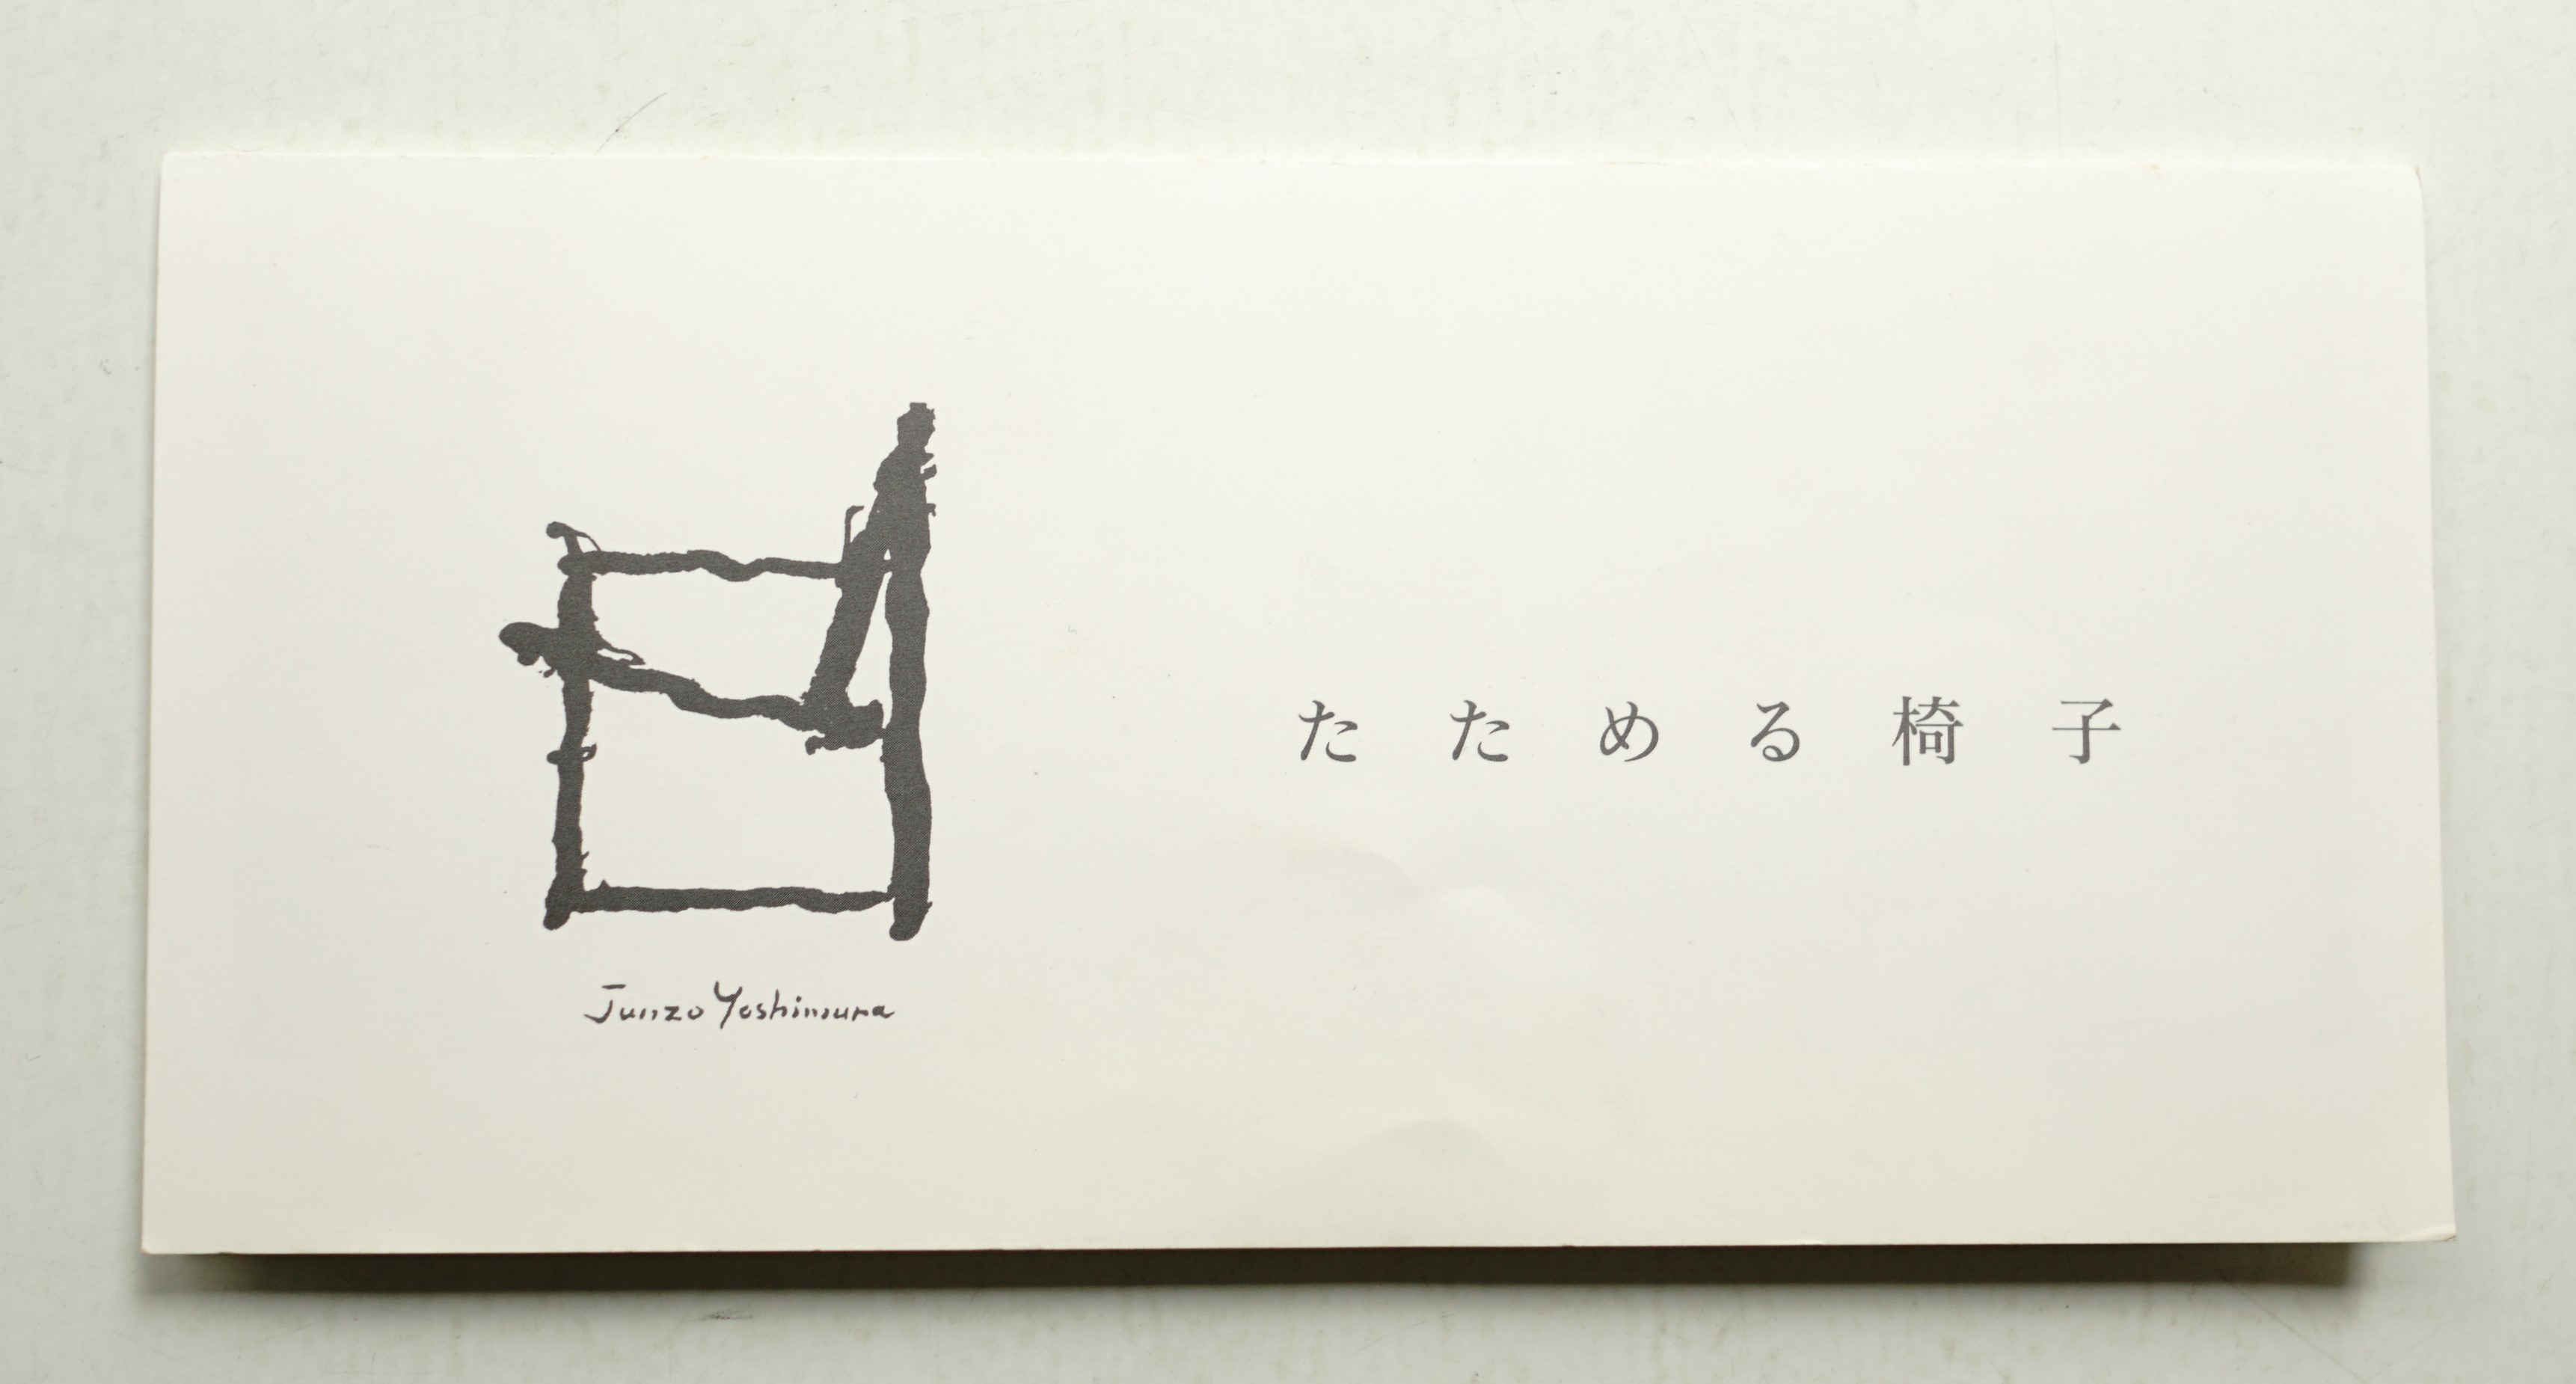 たためる椅子
Junzo Yoshimura